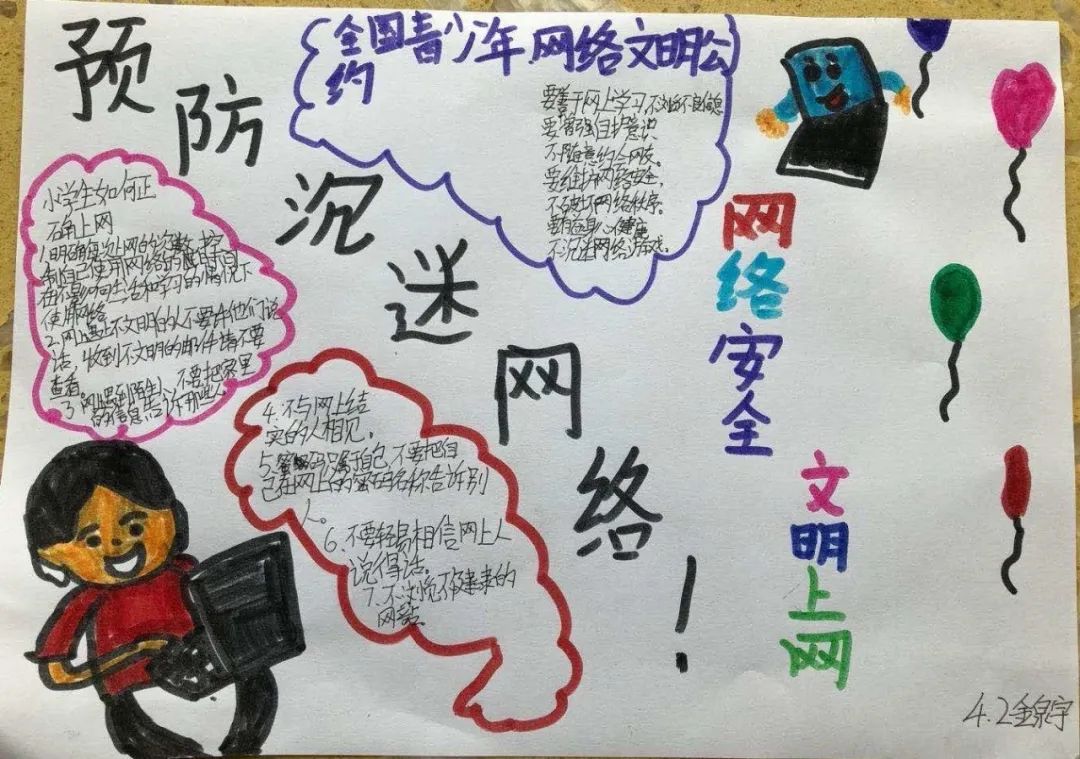 预防沉迷网络！
全国青少年网络文明公
约
要善于网上学习,不浏览不良信息
要增强自护意识
不随意约会网友。
要维护网络安全,
不破坏网络秩序。
要有益身心健康
不沉迷网络游戏。
小学生如何正
确上网
1.明确每次上网的次数,控
制自己使用网络的时间
在不影响生活和学习的情况下
使用网络
2.网上遇上不文明的人不要和他们说
话,收到不文明的邮件请不要
查看。
3.网上遇到陌生人,不要把家里
的信息告诉那些人
4.不与网上结
实的人相见。
5.密码只属于自己,不要把自
己在网上的密码名称告诉别
人。
6、不要轻易相信网上人
说得话。
7.不浏览不健康的
网站。
网络安全
文明上网
4.2